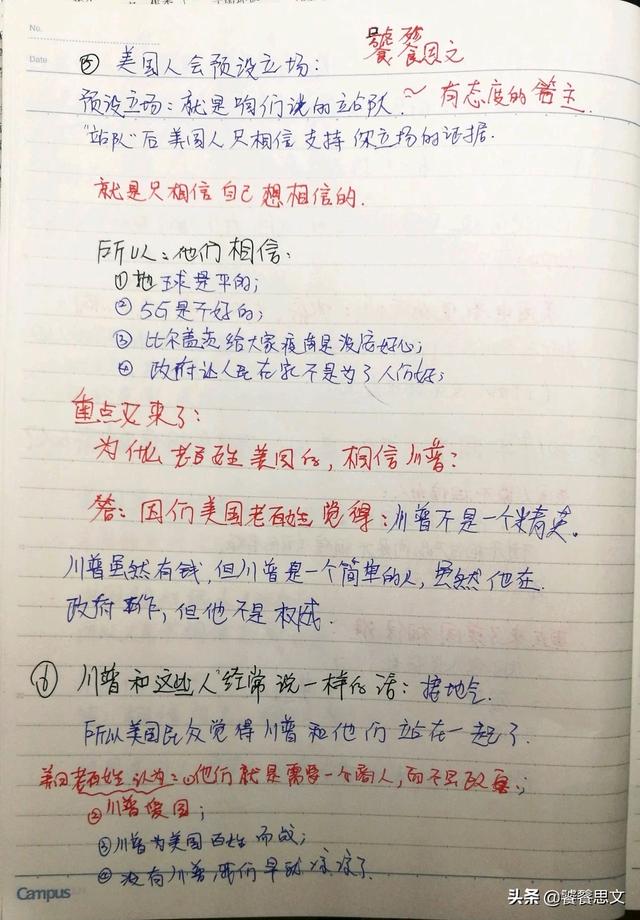 No.
饕餮思文
Date
⑤ 美国人会预设立场：
预设立场：就是咱们说的站队 ~ 有态度的
"站队"后美国人只相信支持你立场的证据.
就是只相信自己想相信的.
所以：他们相信：
①地球是平的；
②5G是不好的；
③比尔盖茨给大家疫苗是没安好心；
④政府让人民在家不是为了人们好；
重点又来了：
为什么老百姓美国的，相信川普？
答：因们美国老百姓觉得：川普不是一个精英。
川普虽然有钱，但川普是一个简单的人，虽然他在
政府工作，但他不是权威.
⑥ 川普和"这些人"经常说一样的话：接地气.
所以美国民众觉得川普和他们站在一起了.
美国老百姓认为：①他们就是需要一个商人，而不是政客；
②川普爱国；
③川普为美国百姓而战；
④没有川普，我们早就凉凉了
Campus
头条 @饕餮思文